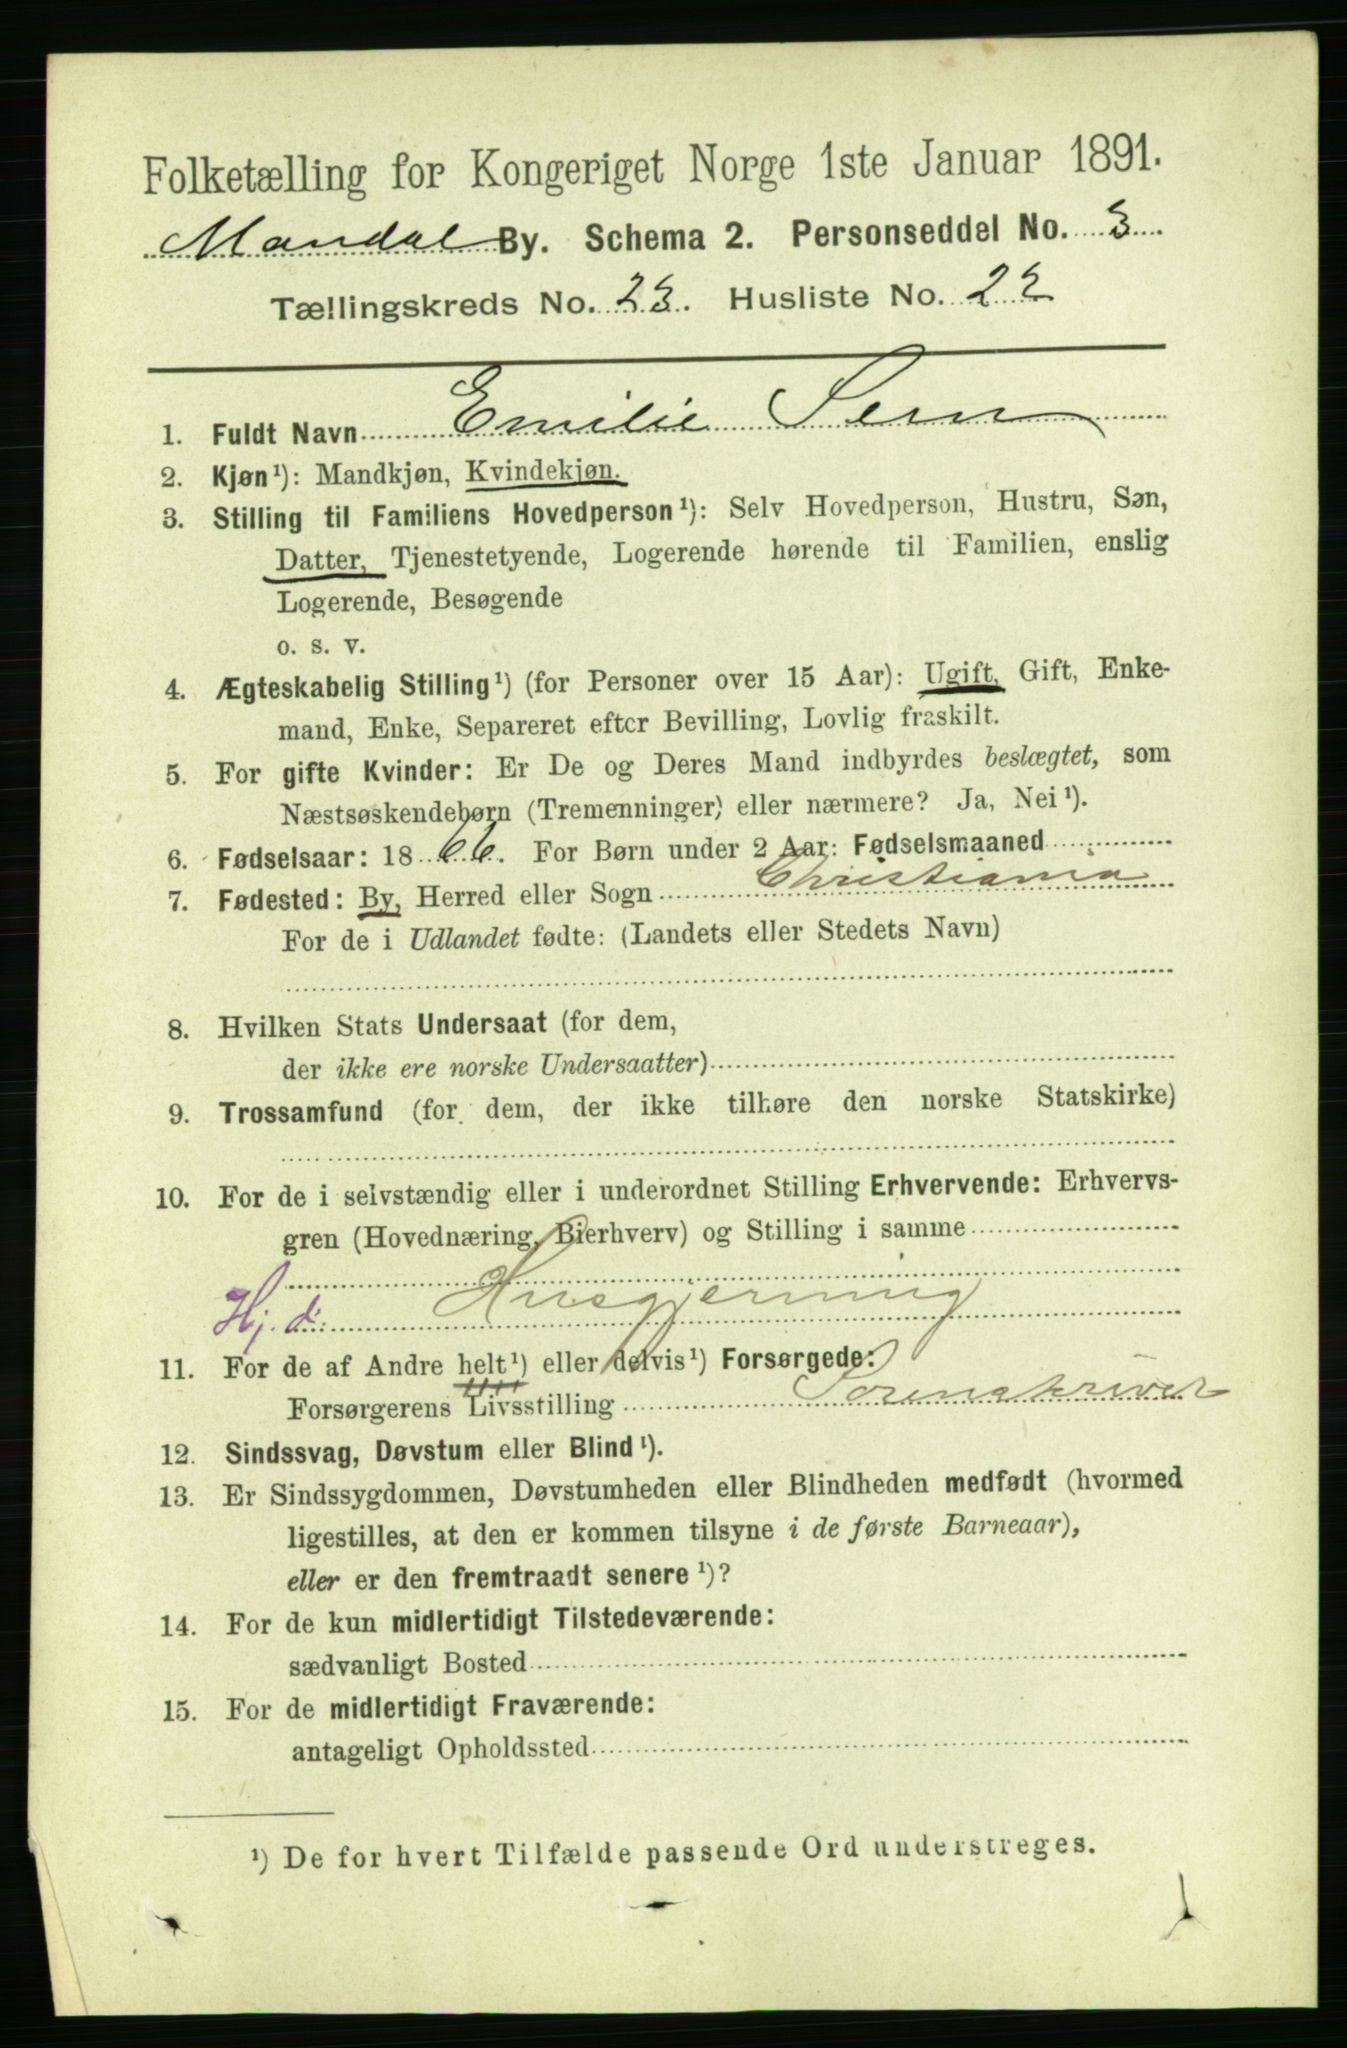 Folketælling for Kongeriget Norge 1ste Januar 1891.
Mandal By. Schema 2. Personseddel No. 3
Tællingskreds No. 23. Husliste No. 22
1. Fuldt Navn Emilie
2. Kjøn¹): Mandkjøn, Kvindekjøn.
3. Stilling til Familiens Hovedperson¹): Selv Hovedperson, Hustru, Søn,
Datter, Tjenestetyende, Logerende hørende til Familien, enslig
Logerende, Besøgende
o. s. v.
4. Ægteskabelig Stilling¹) (for Personer over 15 Aar): Ugift, Gift, Enke-
mand, Enke, Separeret efter Bevilling, Lovlig fraskilt.
5. For gifte Kvinder: Er De og Deres Mand indbyrdes beslægtet, som
Næstsøskendebørn (Tremenninger) eller nærmere? Ja, Nei¹).
6. Fødselsaar: 1866. For Børn under 2 Aar: Fødselsmaaned
7. Fødested: By, Herred eller Sogn Christiania
For de i Udlandet fødte: (Landets eller Stedets Navn)
8. Hvilken Stats Undersaat (for dem,
der ikke ere norske Undersaatter)
9. Trossamfund (for dem, der ikke tilhøre den norske Statskirke)
10. For de i selvstændig eller i underordnet Stilling Erhvervende: Erhvervs-
gren (Hovednæring, Bierhverv) og Stilling i samme
Hj. d: Husgjerning
11. For de af Andre helt¹) eller delvis¹) Forsørgede:
Forsørgerens Livsstilling Sorenskriver
12. Sindssvag, Døvstum eller Blind¹).
13. Er Sindssygdommen, Døvstumheden eller Blindheden medfødt (hvormed
ligestilles, at den er kommen tilsyne i de første Barneaar),
eller er den fremtraadt senere¹)?
14. For de kun midlertidigt Tilstedeværende:
sædvanligt Bosted
15. For de midlertidigt Fraværende:
antageligt Opholdssted
¹) De for hvert Tilfælde passende Ord understreges.